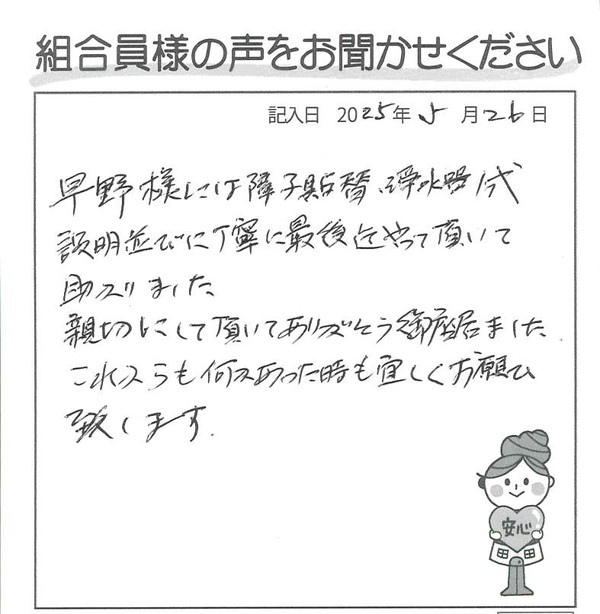 組合員様の声をお聞かせください
記入日 2025年5月26日
早野様には障子貼替、浄水器代
説明並びに丁寧に最後迄やって頂いて
助かりました
親切にして頂いてありがとう御座居ました
これからも何かあった時も宜しくお願い
致します.
安心